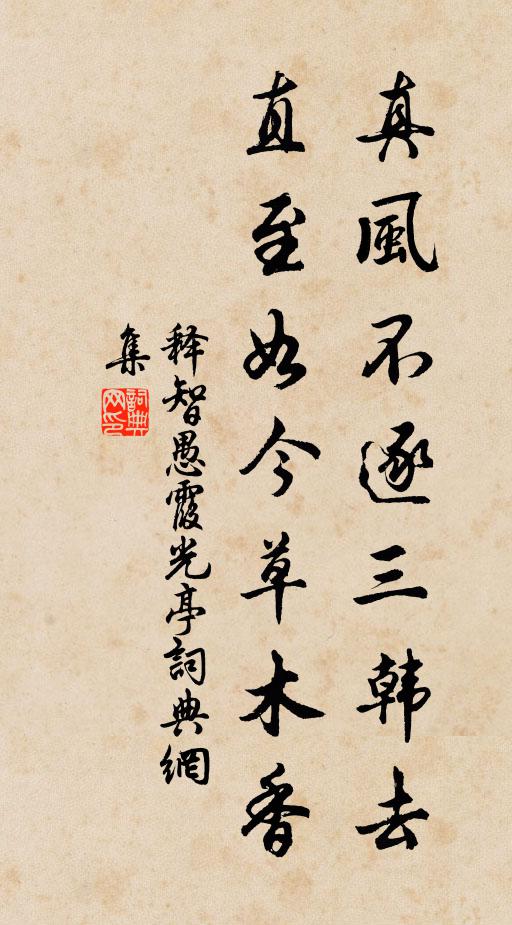 真風不逐三韩去
直至如今草木香
释智愚霞光亭詞典網
集
詞典
网印